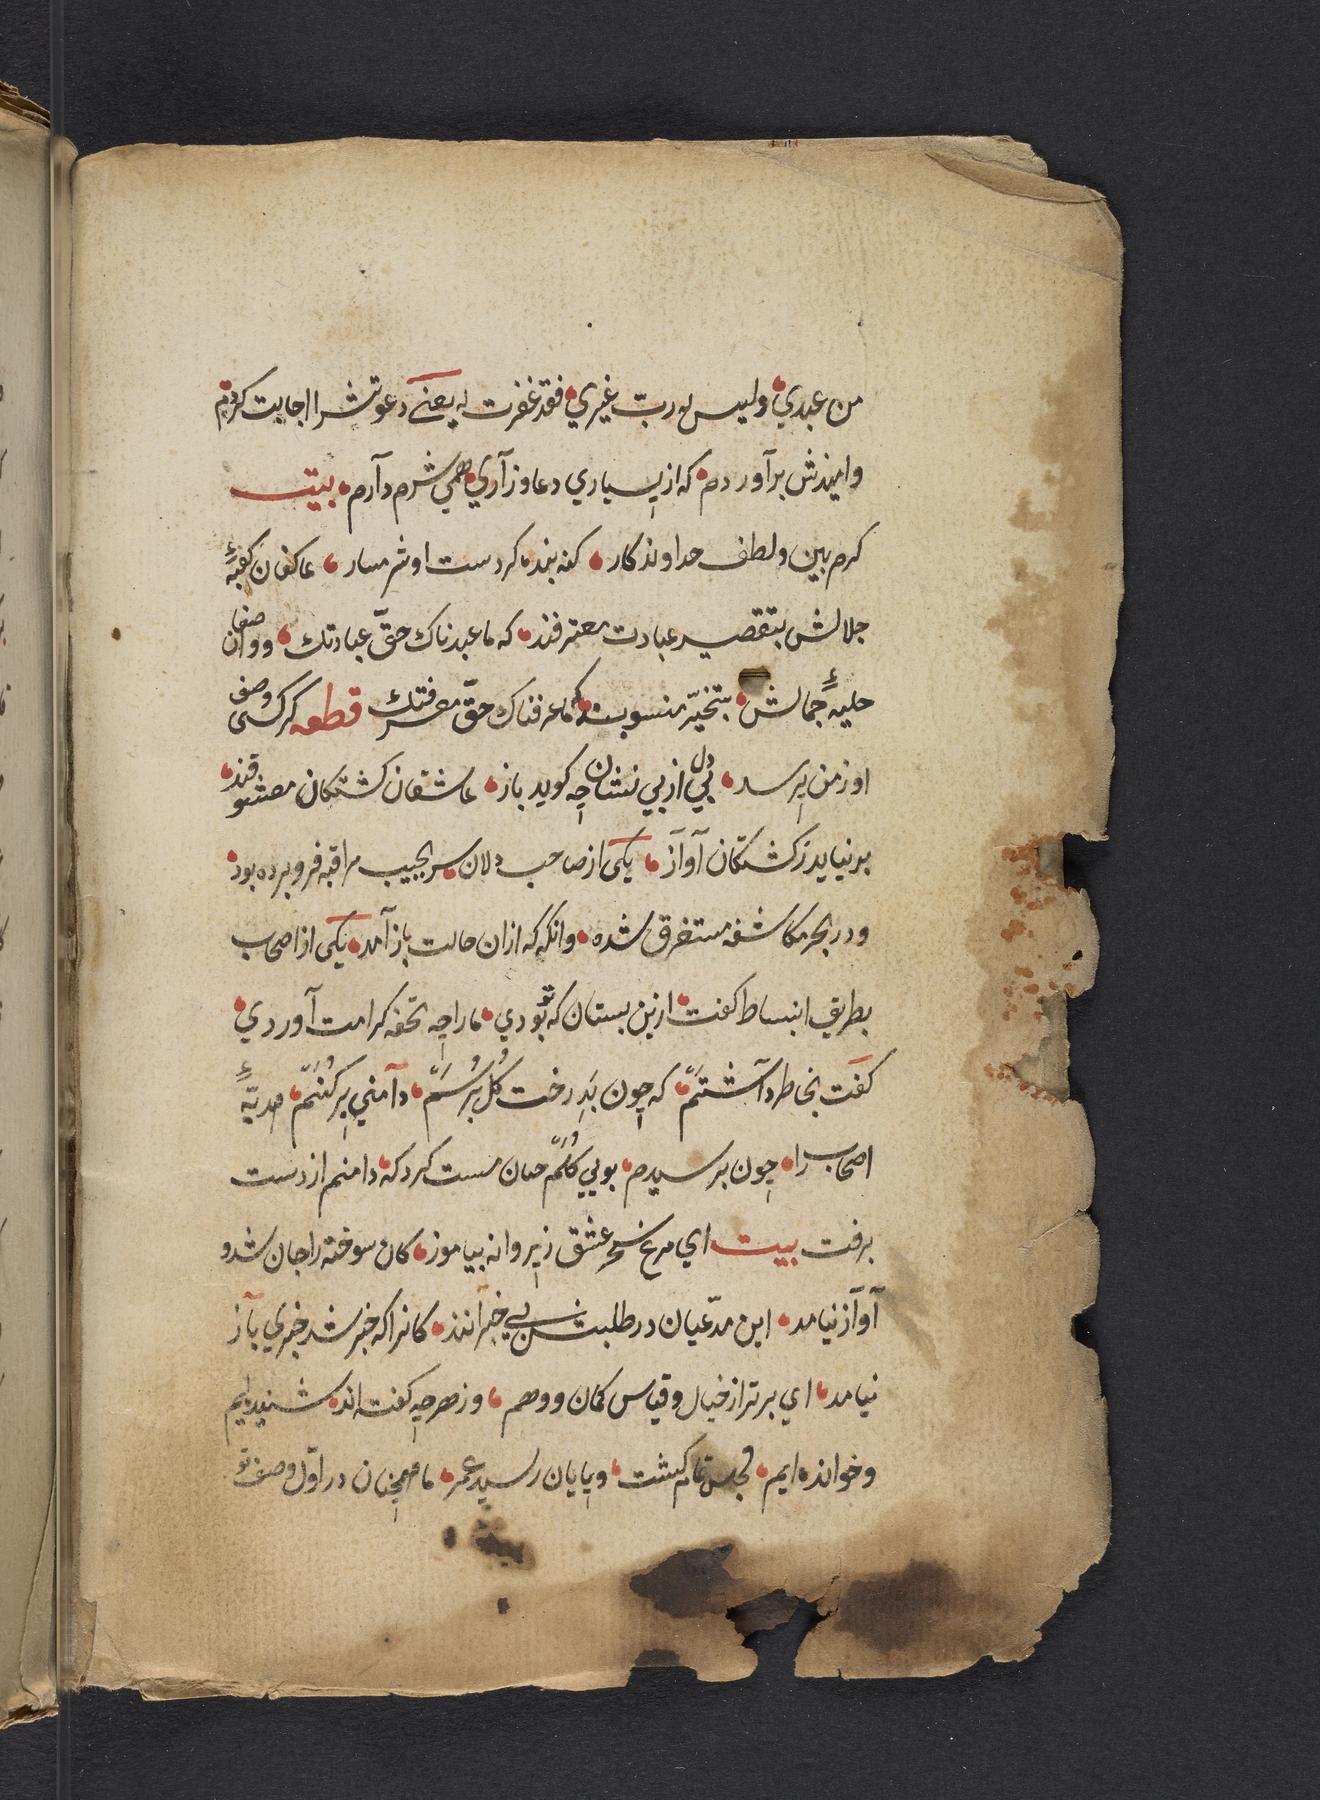 من عبدي وليس له ربّ غيري فقد غفرت له يعنے دعوتش را اجابت كردم
واميذش برآوردم كه از بسياري دعا وزاري همي شرم دآرم بيت
كرم بين ولطف خداوندكار كنه بنده كردست او شرمسار عاكفان كعبۀ
جلالش بتقصير عبادت معترفند كه ما عبدناك حقّ عبادتك وواصفان
حليۀ جمالش بتخيّر منسوبند كه ما عرفناك حقّ معرفتك قطعه كر كسى وصف
او زمن پرسد بي دل از بي نشان چه كويد باز عاشقان كشتكان معشوقند
بر نيايد ز كشتكان آوآز يكى از صاحب دلان سر بجيب مراقبه فرو برده بود
ودر بحر مكاشفه مستغرق شده وانكه كه ازان حالت باز آمد يكى از اصحاب
بطريق انبساط كفت ازين بستان كه تو بودي ما را چه تحفه كرامت آوردي
كفت بخاطر دآشتتم كه چون بدرخت كل برسم دآمني پر كنم هديّۀ
اصحاب را چون برسيدم بويي كلم چنان مست كرد كه دامنم از دست
برفت بيت اي مرغ سحر عشق ز پروانه بياموز كان سوخته را جان شد و
آوآز نيامد اين مدّعيان در طلبش بے خبرآنند كانرا كه خبر شد خبري بآز
نيامد اي برتر از خيال وقياس كمان ووهم وز هر چه كفته اند شنيديم
وخوانده ايم مجلس تمام كشت وبپايان رسيد عمر ما همچنان در اوّل وصف تو